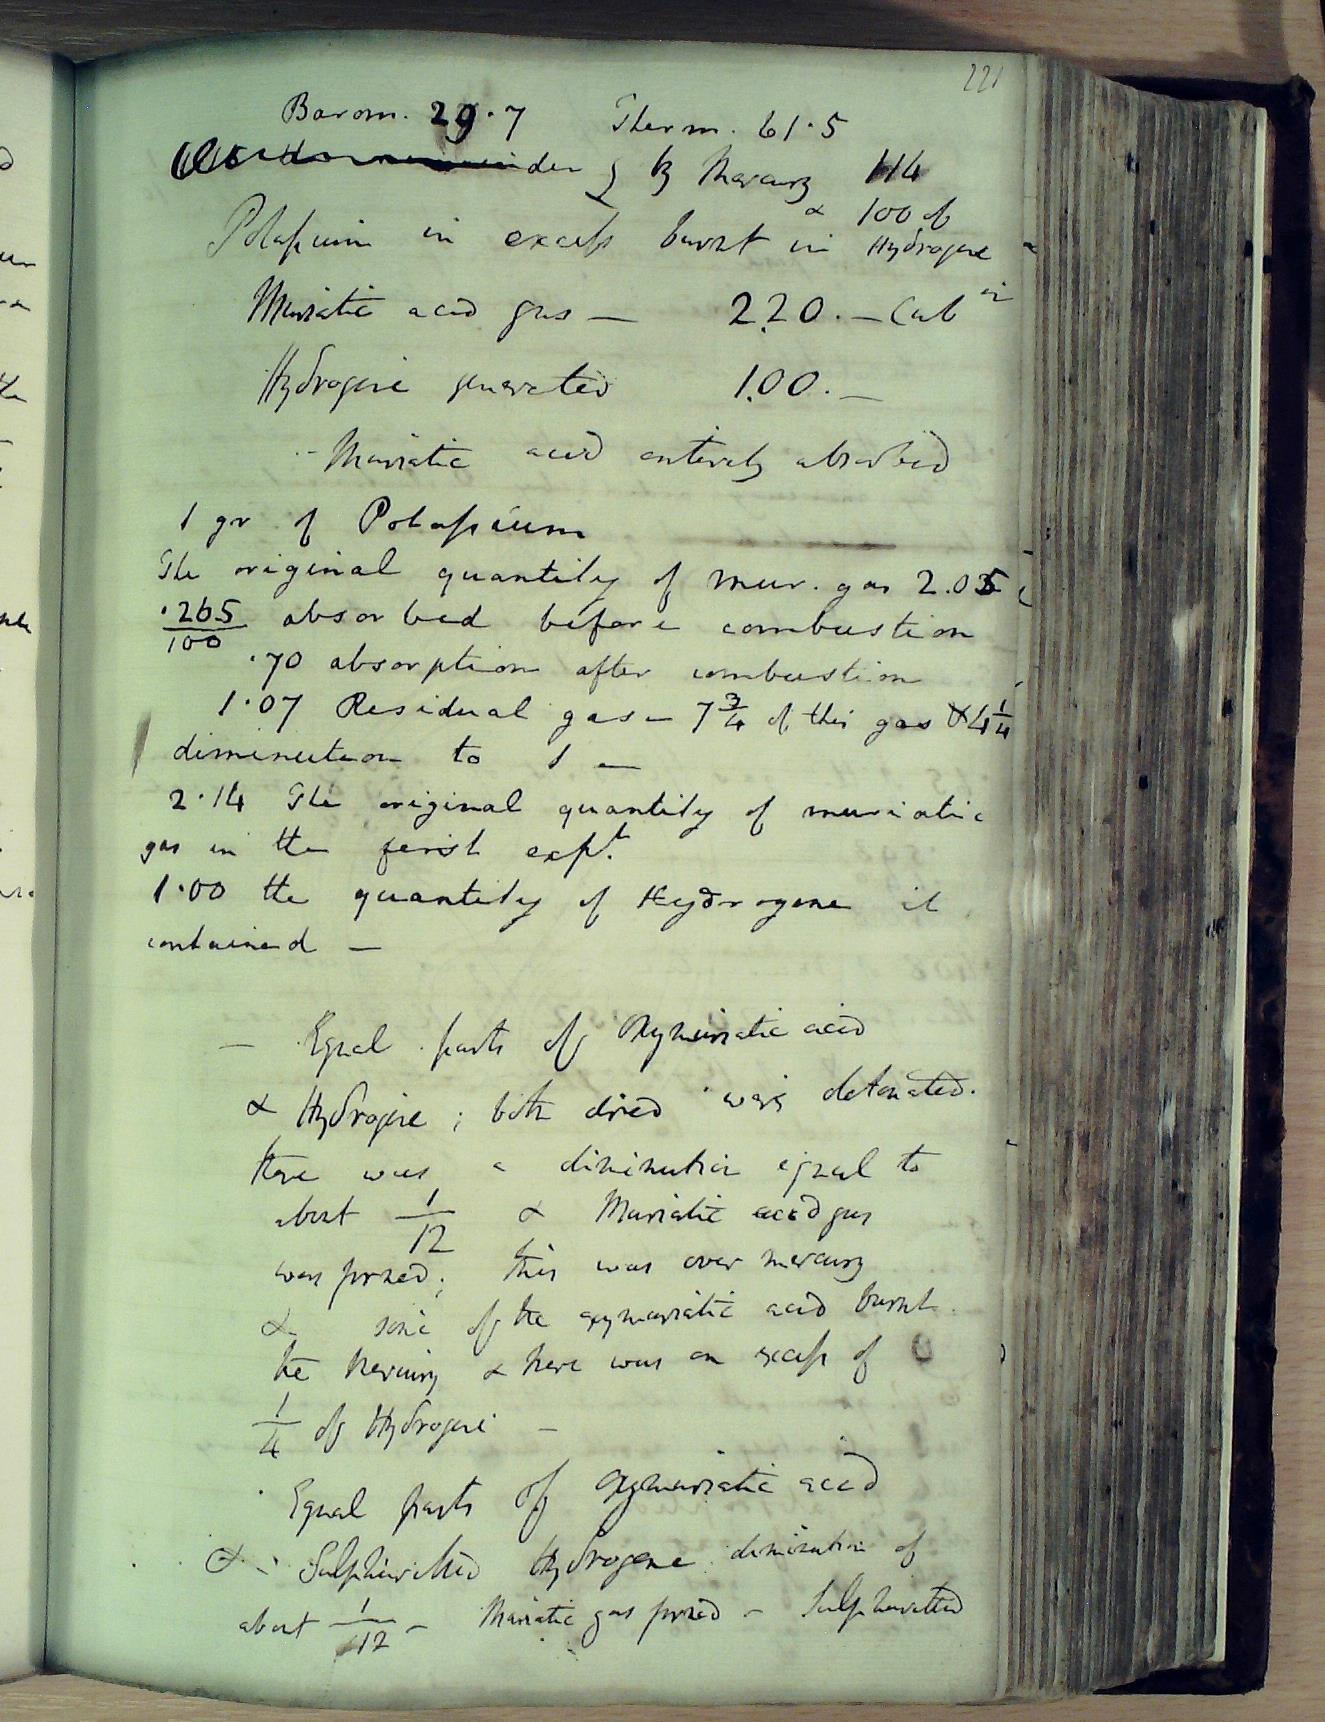 221
Barom. 29.7 Therm. 61.5
by Mercury 114
& 100 of
Potassium in excess burnt in Hydrogene
Muriatic acid gas — 2.20. — Cub in
Hydrogene generated 1.00. —
- Muriatic acid entirely absorbed
1 gr of Potassium
The original quantity of mur. gas 2.05
.265/100 absorbed before combustion
.70 absorption after combustion
1.07 Residual gas — 7 3/4 of this gas & 4 1/4
diminution to 1 —
2.14 The original quantity of muriatic
gas in the first expt.
1.00 the quantity of Hydrogene it
contained —
— Equal parts of Oxymuriatic acid
& Hydrogene; both dried were detonated.
there was a diminution equal to
about 1/12 & Muriatic acid gas
was formed; this was over mercury
& some of the oxymuriatic acid burnt
the Mercury & there was an excess of
1/4 of Hydrogene —
Equal parts of oxymuriatic acid
& - Sulphuretted Hydrogene diminution of
about 1/12 - Muriatic gas formed - Sulphuretted